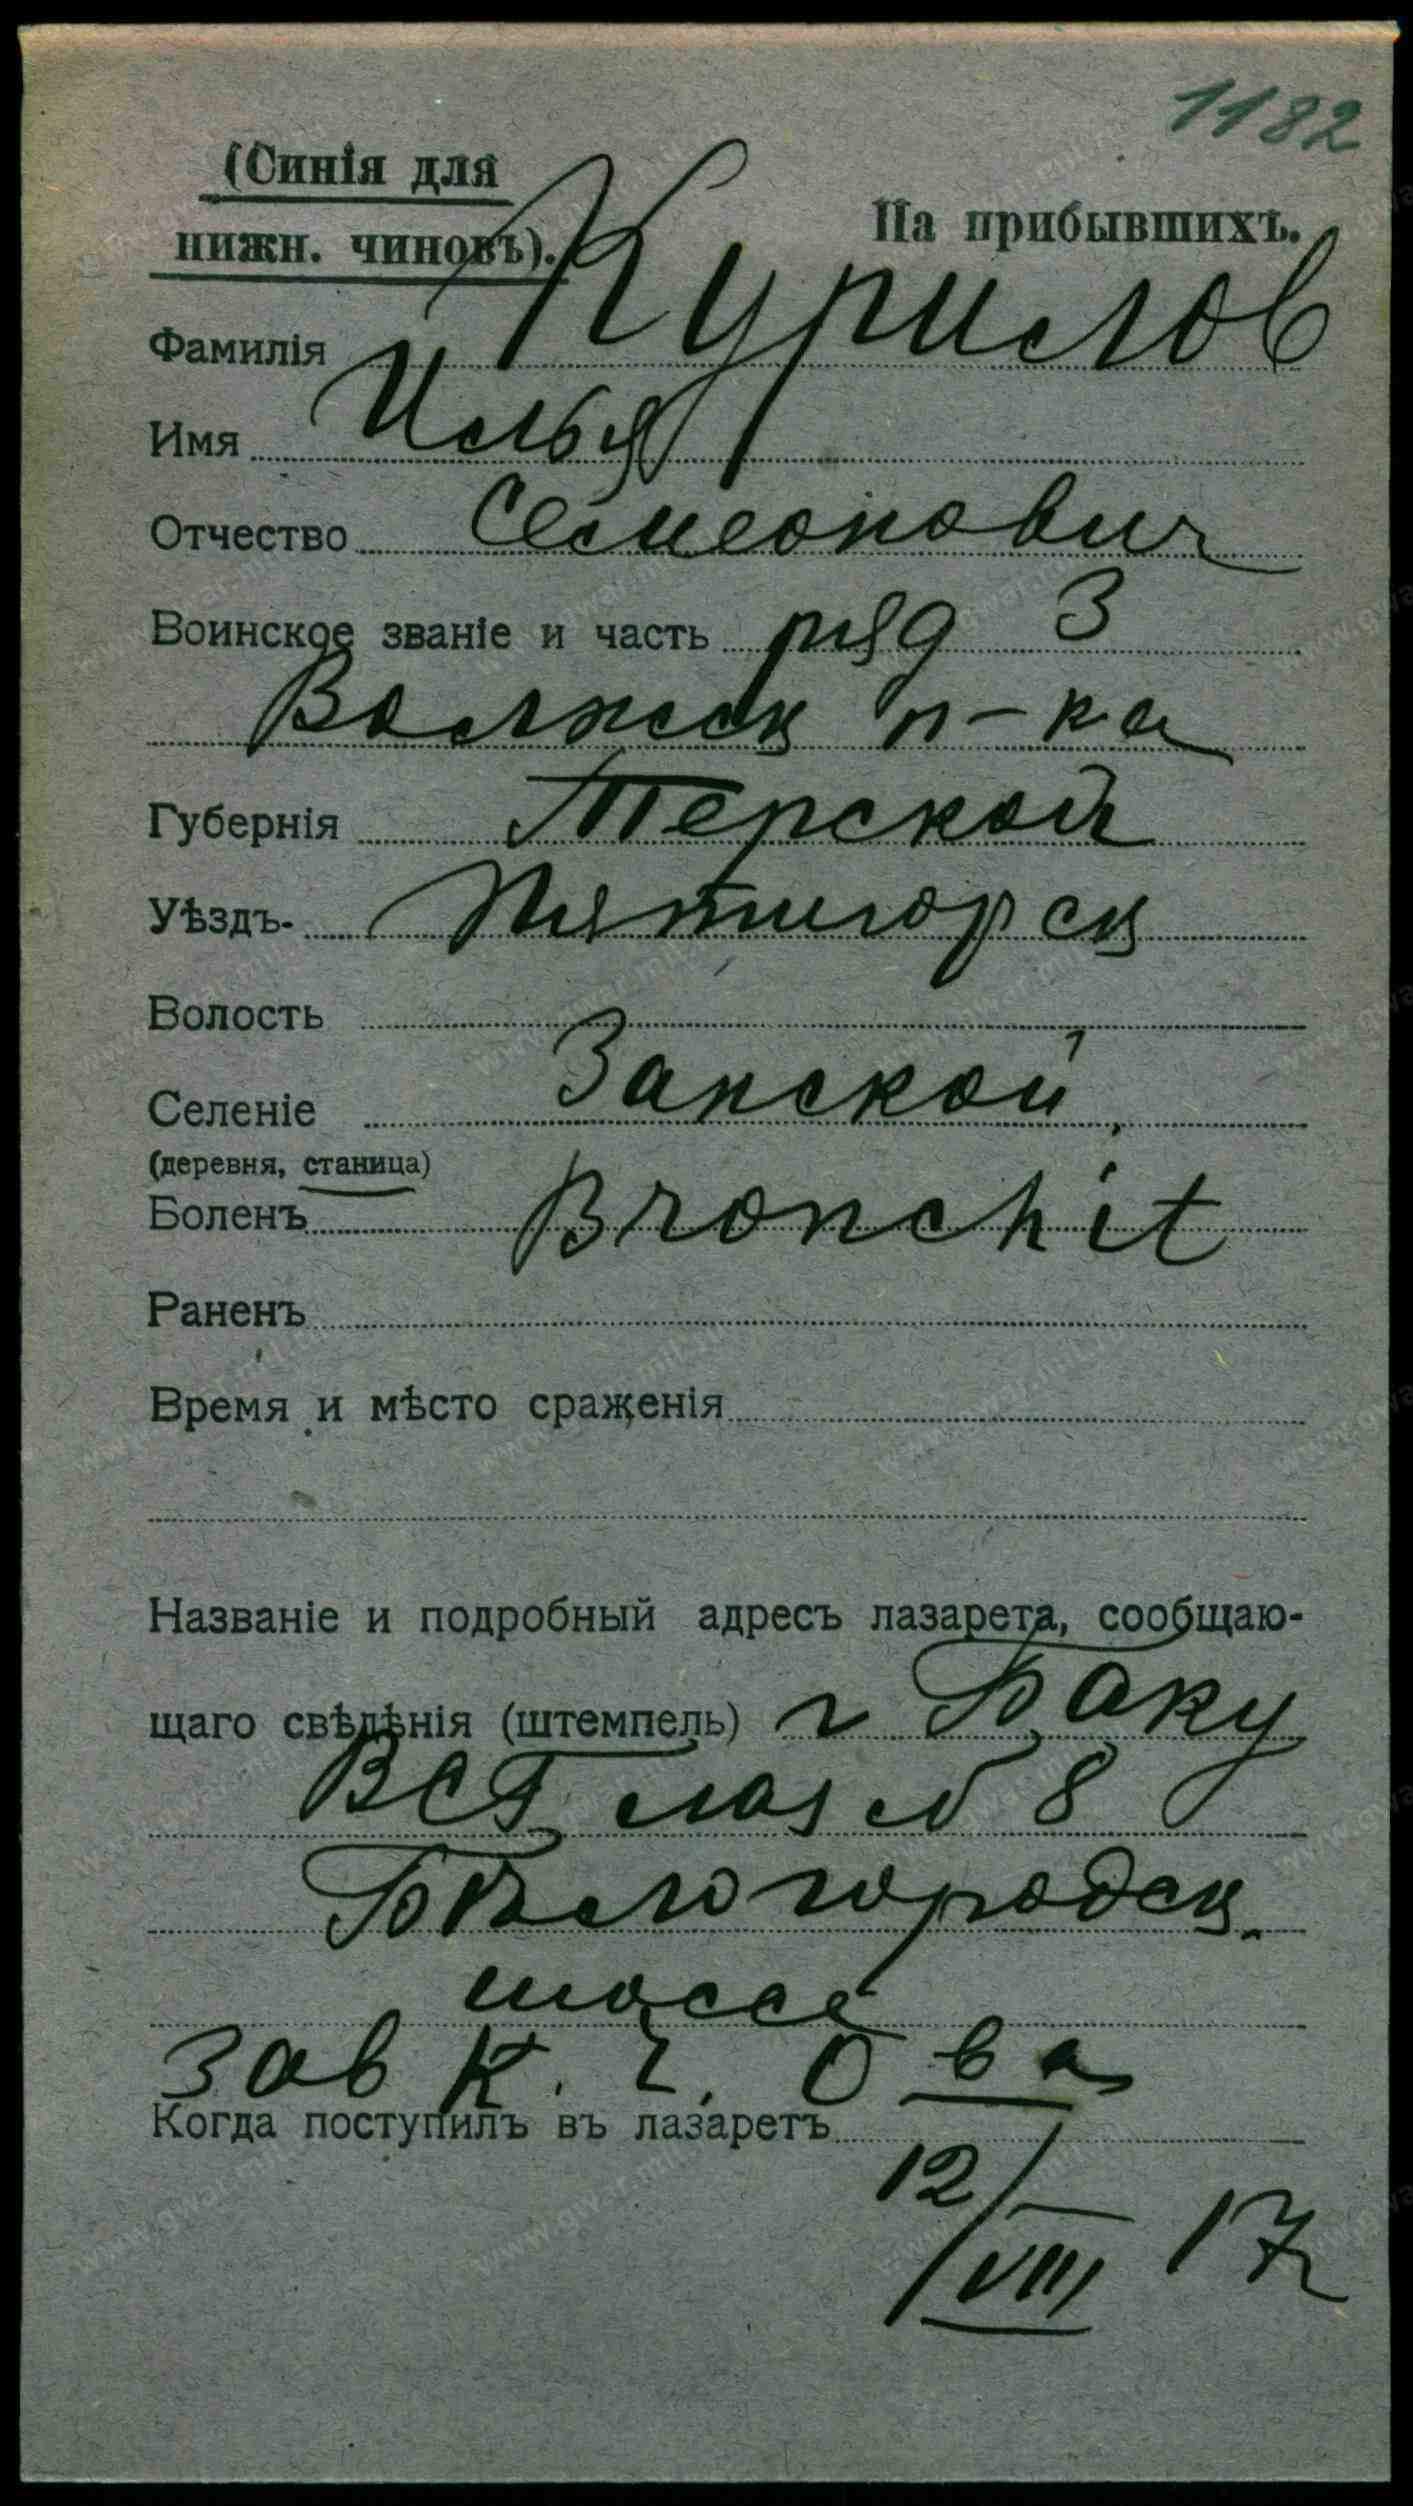 1182
(Синія для
нижн. чиновъ).
На прибывшихъ.
Фамилія Курилов
Имя Илья
Отчество Семеонович
Воинское званіе и часть ряд 3
Волжск п-ка
Губернія Терской
Уѣздъ Пятигорск
Волость
Селеніе Занской
(деревня, станица)
Боленъ Bronchit
Раненъ
Время и мѣсто сраженія
Названіе и подробный адресъ лазарета, сообщаю-
щаго свѣдѣнія (штемпель) г Баку
ВСГ лаз № 8
Бѣлогородск.
шоссе
Зав К. Ч. О ва
Когда поступилъ въ лазаретъ
12/VIII 17